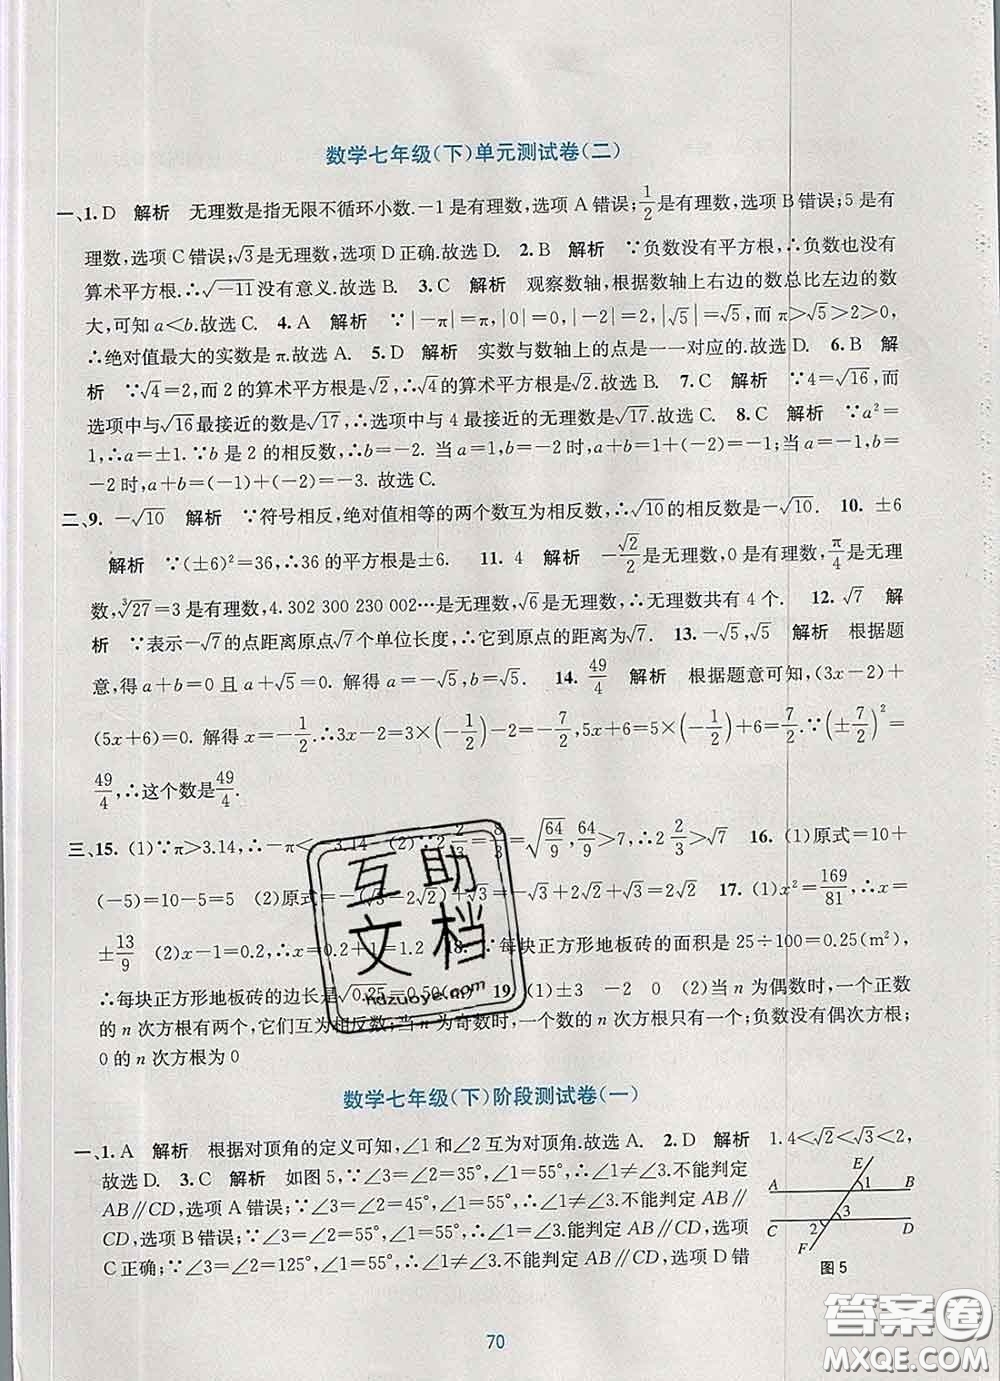 数学七年级(下)单元测试卷(二)
一、1. D 解析 无理数是指无限不循环小数.-1是有理数,选项A错误;1/2是有理数,选项B错误;5是有
理数,选项C错误;√3是无理数,选项D正确.故选D. 2. B 解析 ∵负数没有平方根,∴负数也没有
算术平方根.∴√-11没有意义.故选B. 3. C 解析 观察数轴,根据数轴上右边的数总比左边的数
大,可知a<b.故选C. 4. A 解析 ∵|-π|=π,|0|=0,|-2|=2,|√5|=√5,而π>√5>2>0,
∴绝对值最大的实数是π.故选A. 5. D 解析 实数与数轴上的点是一一对应的.故选D. 6. B 解
析 ∵√4=2,而2的算术平方根是√2,∴√4的算术平方根是√2.故选B. 7. C 解析 ∵4=√16,而
选项中与√16最接近的数是√17,∴选项中与4最接近的无理数是√17.故选C. 8. C 解析 ∵a²=
1,∴a=±1.∵b是2的相反数,∴b=-2. 当a=1,b=-2时,a+b=1+(-2)=-1;当a=-1,b=
-2时,a+b=(-1)+(-2)=-3. 故选C.
二、9. -√10 解析 ∵符号相反,绝对值相等的两个数互为相反数,∴√10的相反数是-√10. 10. ±6
解析 ∵(±6)²=36,∴36的平方根是±6. 11. 4 解析 -√2/2是无理数,0是有理数,π/4是无理
数,³√27=3是有理数,4.302 300 230 002…是无理数,√6是无理数,∴无理数共有4个. 12. √7 解
析 ∵表示-√7的点距离原点√7个单位长度,∴它到原点的距离为√7. 13. -√5,√5 解析 根据题
意,得a+b=0且a+√5=0. 解得a=-√5,b=√5. 14. 49/4 解析 根据题意可知,(3x-2)+
(5x+6)=0. 解得x=-1/2.∴3x-2=3×(-1/2)-2=-7/2,5x+6=5×(-1/2)+6=7/2.∵(±7/2)²=
49/4,∴这个数是49/4.
三、15. (1)∵π>3.14,∴-π<-3.14 (2)∵2 2/3=8/3=√64/9,64/9>7,∴2 2/3>√7 16. (1)原式=10+
(-5)=10-5=5 (2)原式=(-1+2)√3+2√2=-√3+2√2+√3=2√2 17. (1)x²=169/81,∴x=
±13/9 (2)x-1=0.2,∴x=0.2+1=1.2 18. ∵每块正方形地板砖的面积是25÷100=0.25(m²),
∴每块正方形地板砖的边长是√0.25=0.50(m) 19. (1)±3 -2 0 (2)当n为偶数时,一个正数
的n次方根有两个,它们互为相反数;当n为奇数时,一个数的n次方根只有一个;负数没有偶次方根;
0的n次方根为0
互助
文档
hdzuoye.com
数学七年级(下)阶段测试卷(一)
一、1. A 解析 根据对顶角的定义可知,∠1和∠2互为对顶角.故选A. 2. D 解析 1.4<√2<√3<2,
故选D. 3. C 解析 如图5,∵∠3=∠2=35°,∠1=55°,∴∠1≠∠3.不能判定
AB∥CD,选项A错误;∵∠3=∠2=45°,∠1=55°,∴∠1≠∠3.不能判定AB∥
CD,选项B错误;∵∠3=∠2=55°,∠1=55°,∴∠1=∠3.能判定AB∥CD,选项
C正确;∵∠3=∠2=125°,∠1=55°,∴∠1≠∠3.不能判定AB∥CD,选项D错
E
A 1 B
3
C 2 D
F
图5
70
答案圈
MXQE.COM